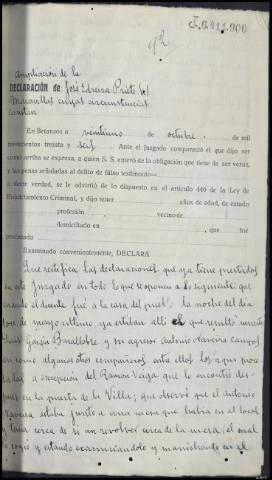 J.G.411.900
92
Ampliación de la
DECLARACIÓN de José Edreira Prieto (a)
Macanillas cuyas circunstancias
constan
En Betanzos a veintiuno de octubre de mil
novecientos treinta y seis. Ante el Juzgado compareció el que dijo ser
como arriba se expresa, a quien S. S. enteró de la obligación que tiene de ser veraz,
y las penas señaladas al delito de falso testimonio
a decir verdad, se le advirtió de lo dispuesto en el artículo 446 de la Ley de
Enjuiciamiento Criminal, y dijo tener años de edad, de estado
profesión vecino de
domiciliado en , que fué
procesado
Examinado convenientemente, DECLARA
Que rectifica las declaraciones que ya tiene prestadas
en este Juzgado en todo lo que se oponen a lo siguiente: que
cuando el diciente fué a la casa del la noche del día
doce de mayo último ya estaban allí el que resultó muerto
Luis García Bruallobre y su agresor Antonio Naveira
así como algunos otros compañeros entre ellos los aquí proce-
sados a excepción del Ramón Veiga que lo encontró des-
pués en la puerta de la Villa; que observó que el Antonio
Naveira estaba junto a una mesa que había en el local
y tenía cerca de si un revólver cerca de la mesa, el cual
lo cogió y estando examinándole y maniobrando en el